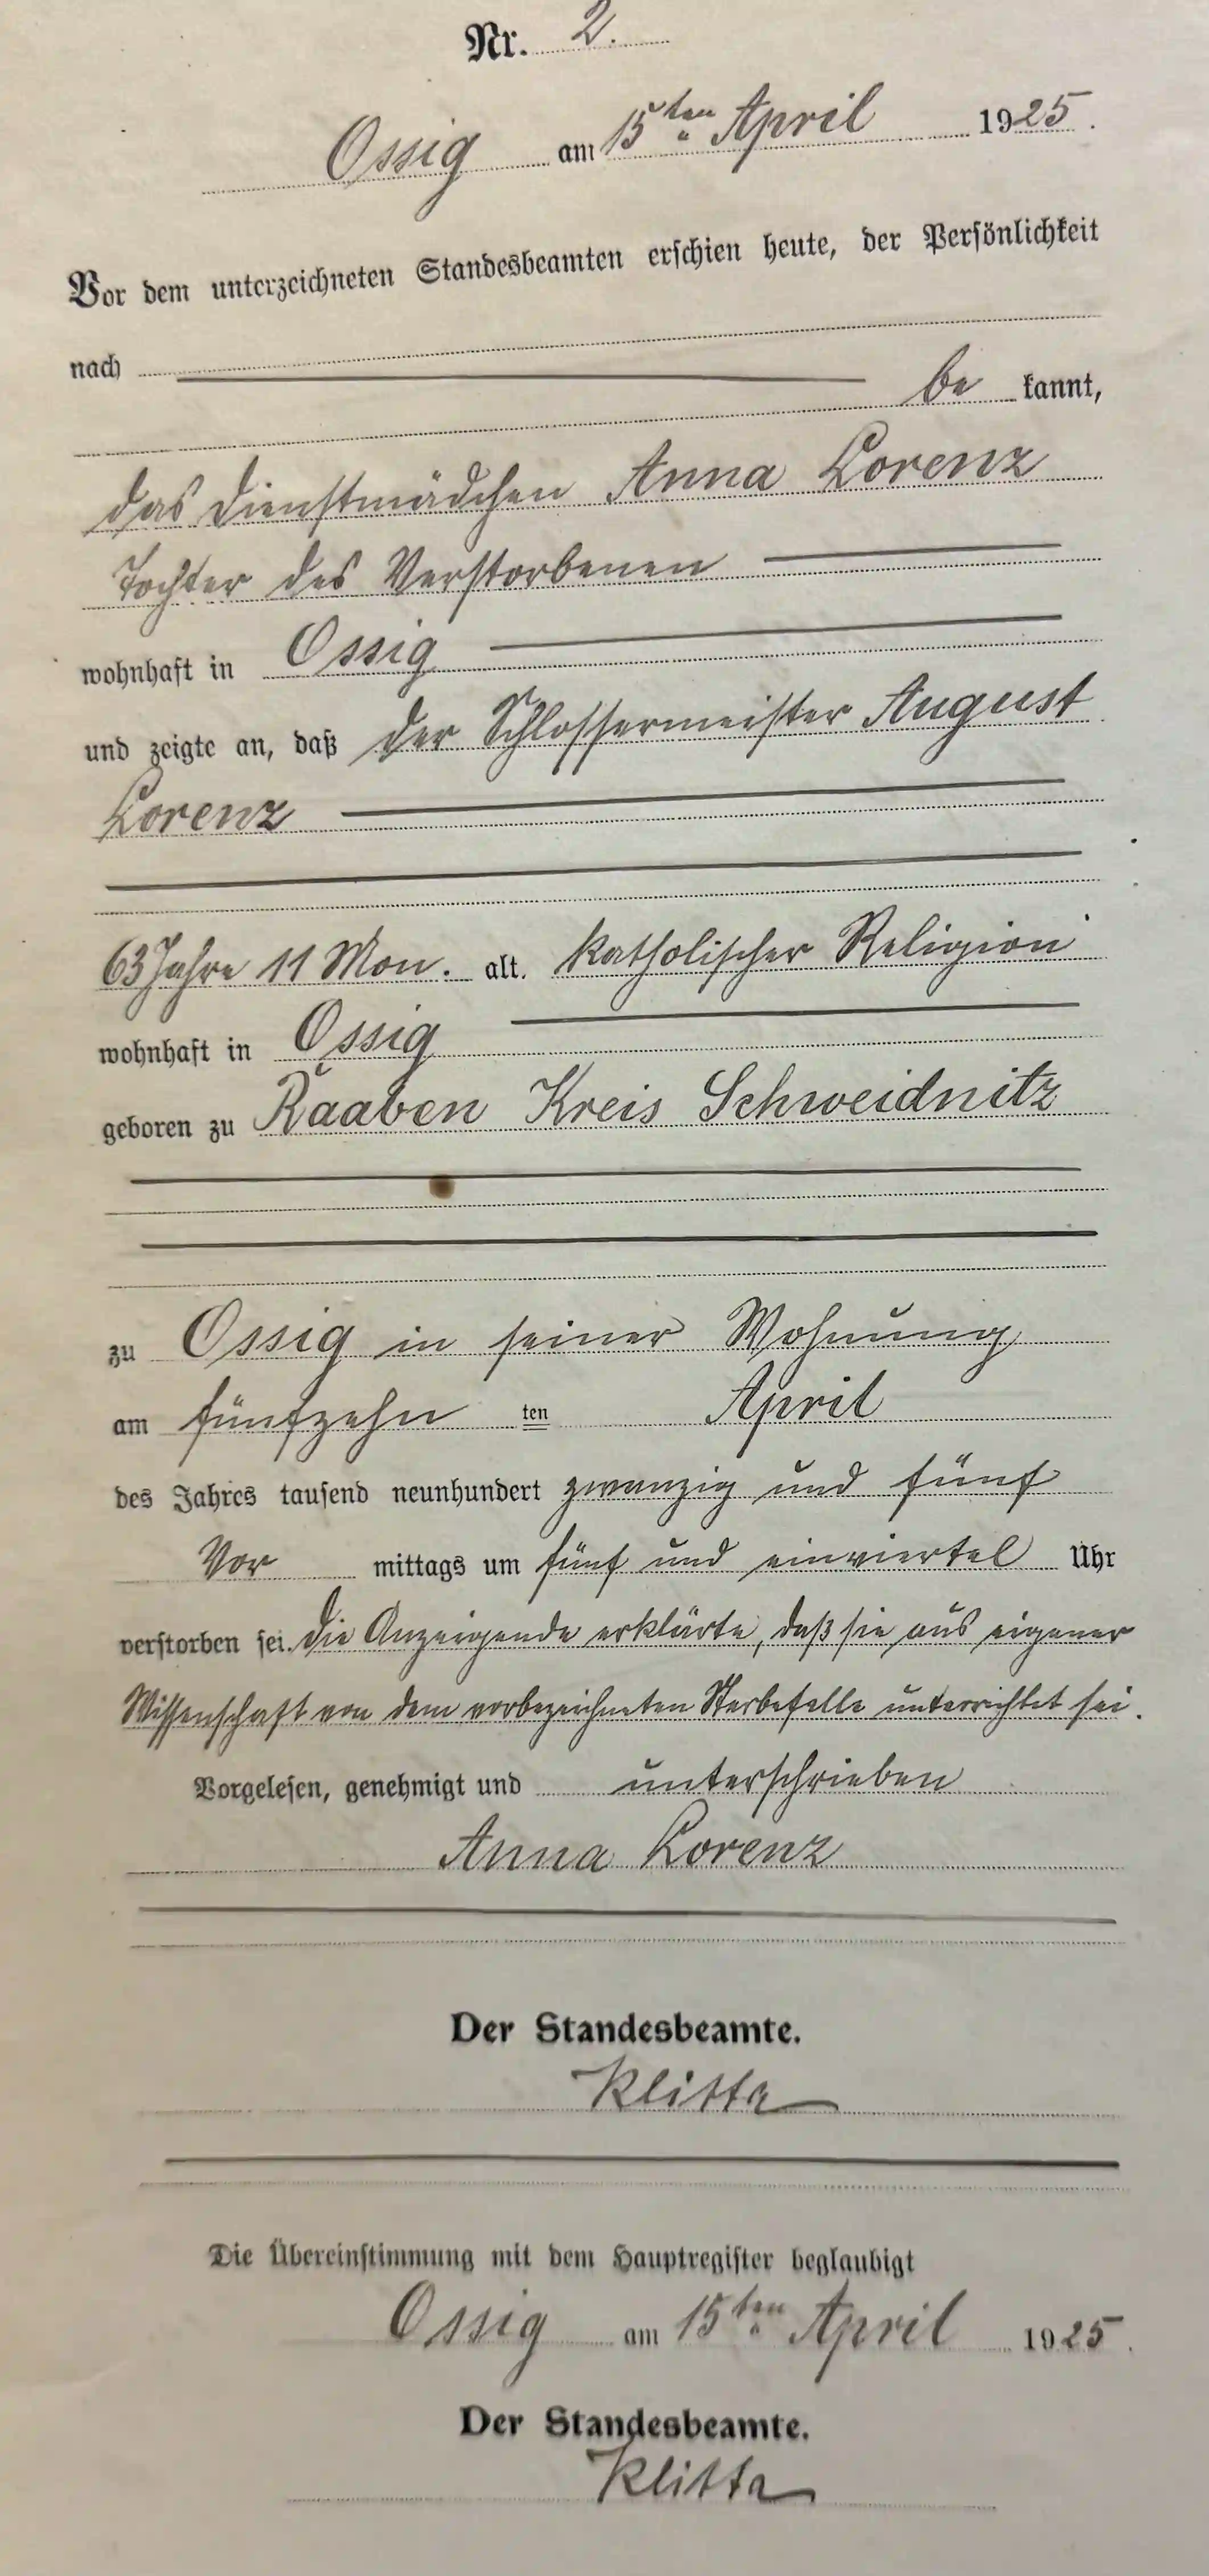 Nr. 2.
Ossig am 15ten April 1925.
Vor dem unterzeichneten Standesbeamten erschien heute, der Persönlichkeit
nach
be kannt,
das Dienstmädchen Anna Lorenz
Tochter des Verstorbenen
wohnhaft in Ossig
und zeigte an, daß der Schlossermeister August
Lorenz
63 Jahre 11 Mon. alt. katholischer Religion
wohnhaft in Ossig
geboren zu Raaben Kreis Schweidnitz
zu Ossig in seiner Wohnung
am fünfzehn ten April
des Jahres tausend neunhundert zwanzig und fünf
Vor mittags um fünf und einviertel Uhr
verstorben sei. Die Anzeigende erklärte, daß sie aus eigener
Wissenschaft von dem vorbezeichneten Sterbefalle unterrichtet sei.
Vorgelesen, genehmigt und unterschrieben
Anna Lorenz
Der Standesbeamte.
Klitta
Die Übereinstimmung mit dem Hauptregister beglaubigt
Ossig am 15ten April 1925.
Der Standesbeamte.
Klitta